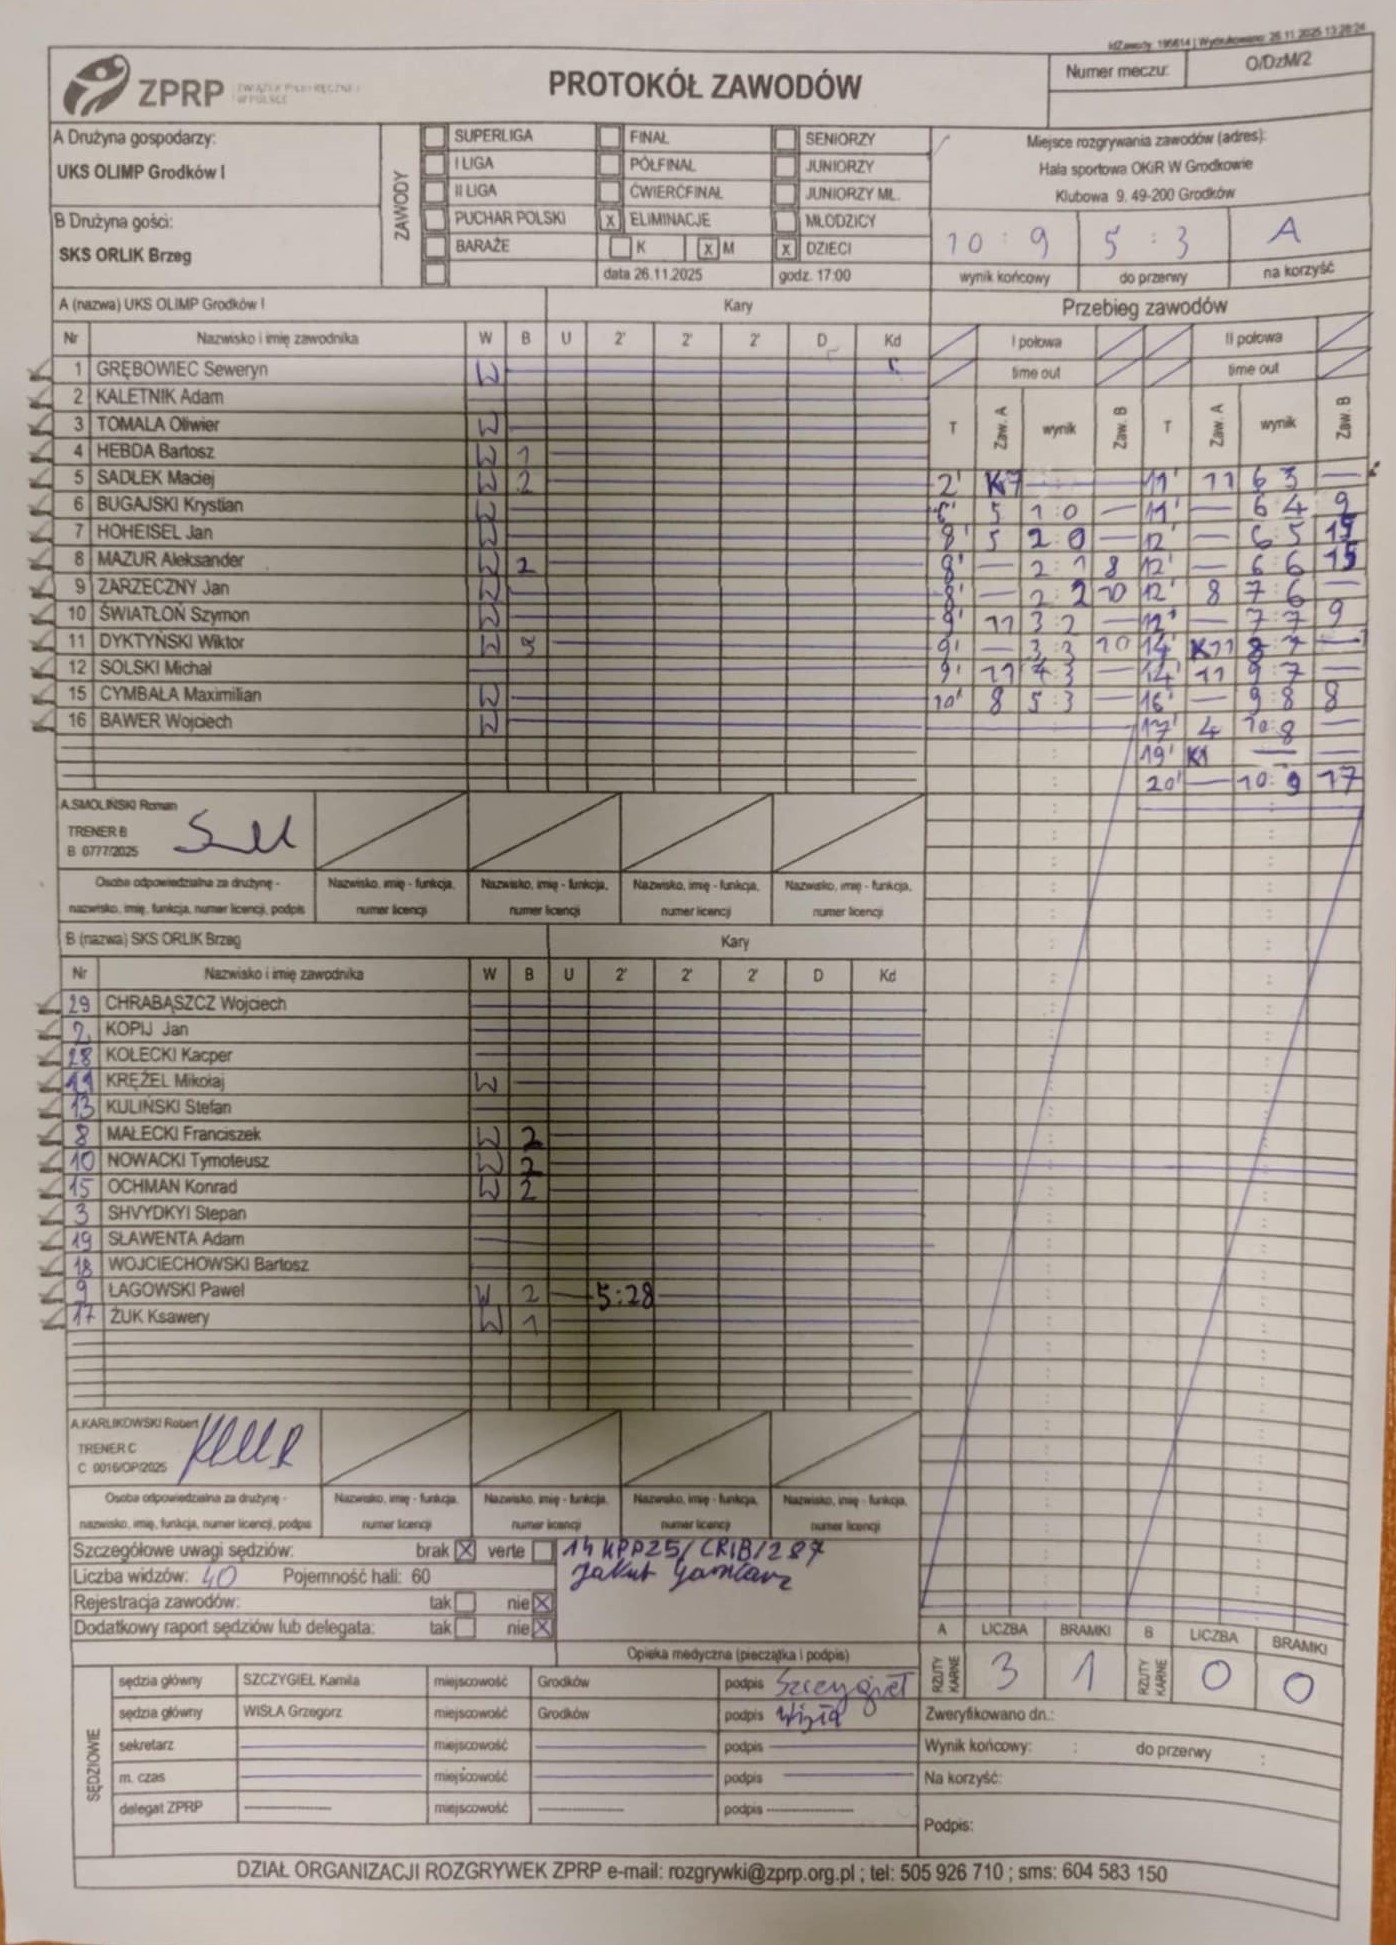 IdZawody: 195614 | Wydrukowano: 25.11.2025 13:28:24
ZPRP ZWIĄZEK PIŁKI RĘCZNEJ W POLSCE
PROTOKÓŁ ZAWODÓW
Numer meczu: O/DzM/2
A Drużyna gospodarzy:
UKS OLIMP Grodków I
B Drużyna gości:
SKS ORLIK Brzeg
ZAWODY
SUPERLIGA FINAŁ SENIORZY
I LIGA PÓŁFINAŁ JUNIORZY
II LIGA ĆWIERĆFINAŁ JUNIORZY MŁ.
PUCHAR POLSKI x ELIMINACJE MŁODZICY
BARAŻE K x M x DZIECI
data 26.11.2025 godz. 17:00
Miejsce rozgrywania zawodów (adres):
Hala sportowa OKiR W Grodkowie
Klubowa 9. 49-200 Grodków
10 : 9 5 : 3 A
wynik końcowy do przerwy na korzyść
A (nazwa) UKS OLIMP Grodków I Kary
Nr Nazwisko i imię zawodnika W B U 2' 2' 2' D Kd
1 GRĘBOWIEC Seweryn W
2 KALETNIK Adam
3 TOMALA Oliwier W
4 HEBDA Bartosz W 1
5 SADŁEK Maciej W 2
6 BUGAJSKI Krystian W
7 HOHEISEL Jan W
8 MAZUR Aleksander W 2
9 ZARZECZNY Jan W
10 ŚWIATŁOŃ Szymon W
11 DYKTYŃSKI Wiktor W 5
12 SOLSKI Michał
15 CYMBAŁA Maximilian W
16 BAWER Wojciech W
Przebieg zawodów
I połowa II połowa
time out time out
T Zaw. A wynik Zaw. B T Zaw. A wynik Zaw. B
2' K7 — 11' 11 6 3 —
5 1 : 0 — 11' — 6 : 4 9
8' 5 2 0 — 12' — 6 : 5 15
8' — 2 : 1 8 12' — 6 6 15
8' — 2 : 2 10 12' 8 7 : 6 —
9' 11 3 : 2 — 12' — 7 : 7 9
9' — 3 : 3 10 14' K11 8 7 —
9' 11 4 3 — 14' 11 9 7 —
10' 8 5 : 3 — 16' — 9 : 8 8
17' 4 10 : 8 —
19' — —
20' — 10 : 9 17
A.SMOLIŃSKI Roman
TRENER B
B 0777/2025
Osoba odpowiedzialna za drużynę - nazwisko, imię, funkcja, numer licencji, podpis
Nazwisko, imię - funkcja, numer licencji
Nazwisko, imię - funkcja, numer licencji
Nazwisko, imię - funkcja, numer licencji
Nazwisko, imię - funkcja, numer licencji
B (nazwa) SKS ORLIK Brzeg Kary
Nr Nazwisko i imię zawodnika W B U 2' 2' 2' D Kd
29 CHRABĄSZCZ Wojciech
2 KOPIJ Jan
28 KOLECKI Kacper
11 KRĘŻEL Mikołaj W
13 KULIŃSKI Stefan
8 MAŁECKI Franciszek W 2
10 NOWACKI Tymoteusz W 2
15 OCHMAN Konrad W 2
3 SHVYDKYI Stepan
19 SŁAWENTA Adam
18 WOJCIECHOWSKI Bartosz
9 ŁAGOWSKI Paweł W 2 5:28
17 ŻUK Ksawery W 1
A.KARLIKOWSKI Robert
TRENER C
C 0016/OP/2025
Osoba odpowiedzialna za drużynę - nazwisko, imię, funkcja, numer licencji, podpis
Nazwisko, imię - funkcja, numer licencji
Nazwisko, imię - funkcja, numer licencji
Nazwisko, imię - funkcja, numer licencji
Nazwisko, imię - funkcja, numer licencji
Szczegółowe uwagi sędziów: brak X verte
Liczba widzów: 40 Pojemność hali: 60
Rejestracja zawodów: tak nie X
Dodatkowy raport sędziów lub delegata: tak nie X
14 KPP25/CRIB/287
Jakub
Opieka medyczna (pieczątka i podpis)
A RZUTY KARNE LICZBA 3 BRAMKI 1 B RZUTY KARNE LICZBA 0 BRAMKI 0
SĘDZIOWIE
sędzia główny SZCZYGIEŁ Kamila miejscowość Grodków podpis Szczygieł
sędzia główny WISŁA Grzegorz miejscowość Grodków podpis Wisła
sekretarz miejscowość podpis
m. czas miejscowość podpis
delegat ZPRP ---------- miejscowość ---------- podpis ----------
Zweryfikowano dn.:
Wynik końcowy: : do przerwy :
Na korzyść:
Podpis:
DZIAŁ ORGANIZACJI ROZGRYWEK ZPRP e-mail: rozgrywki@zprp.org.pl ; tel: 505 926 710 ; sms: 604 583 150